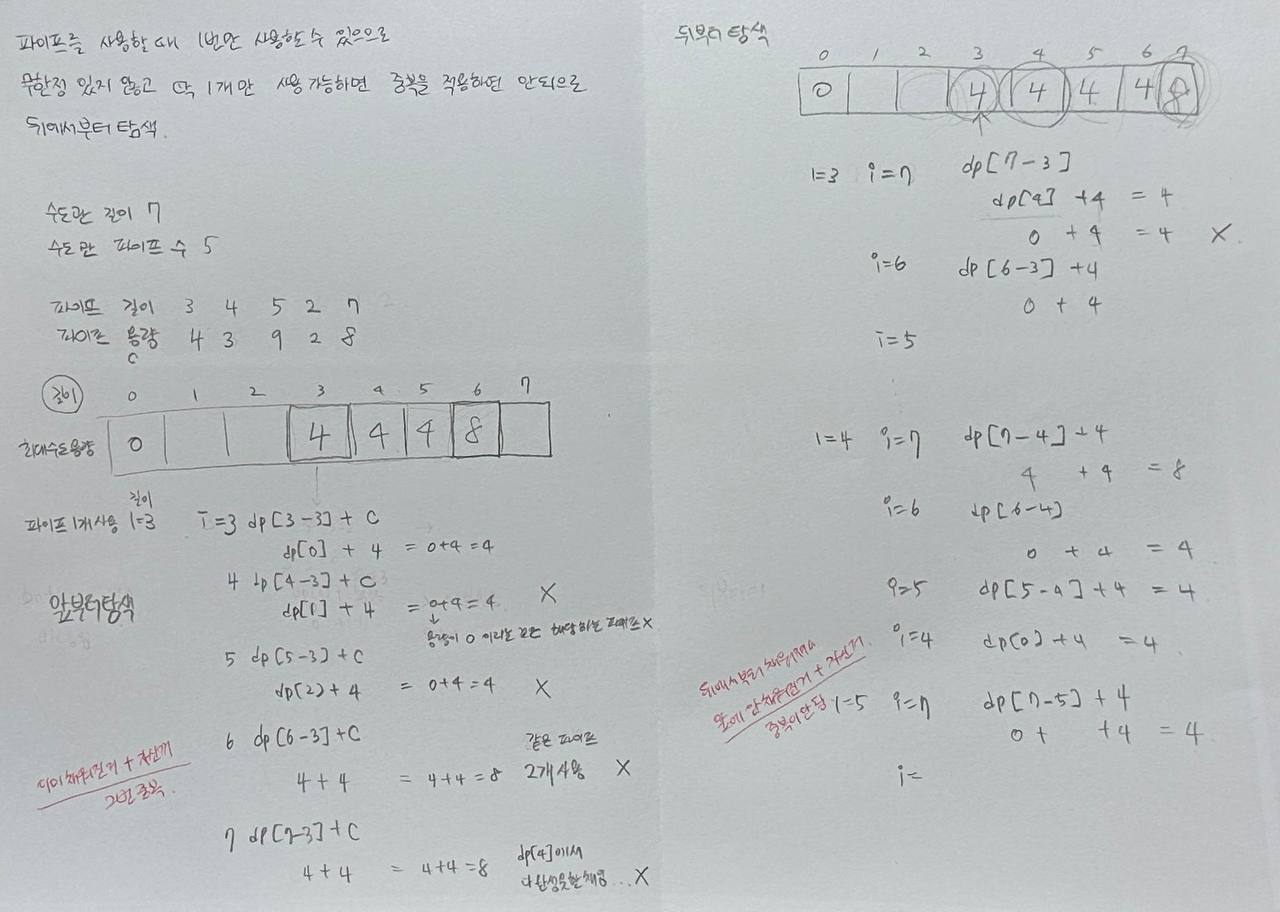 파이프를 사용할 때 1번만 사용할 수 있으므로
무한정 있지 않고 딱 1개만 사용 가능하면 중복을 적용하면 안되므로
뒤에서부터 탐색.
수도관 길이 7
수도관 파이프 수 5
파이프 길이 3 4 5 2 7
파이프 용량 4 3 9 2 8
C
길이 0 1 2 3 4 5 6 7
최대수도용량 0 4 4 4 8
길이
파이프 1개 사용 l=3 i=3 dp[3-3] + C
dp[0] + 4 = 0+4=4
4 dp[4-3] + C
앞부터탐색
dp[1] + 4 = 0+4=4 X
용량이 0 이라는 것은 해당하는 파이프 X
5 dp[5-3]+C
dp(2)+4 = 0+4=4 X
6 dp[6-3]+C
같은 파이프
4+4 = 4+4=8 2개 사용 X
이미 채워진거 + 자신꺼
7 dp[7-3]+C
4+4 = 4+4=8
dp[4]에서
X
뒤부터 탐색
0 1 2 3 4 5 6 7
0 4 4 4 4 8
l=3 i=7 dp[7-3]
dp[4] +4 = 4
0 + 4 = 4 X.
i=6 dp[6-3] +4
0 + 4
i=5
l=4 i=7 dp[7-4]+4
4 + 4 = 8
i=6 dp[6-4]
0 + 4 = 4
i=5 dp[5-4]+4 = 4
i=4 dp[0]+4 = 4
뒤에서부터 채워져서
앞에 안채워진거 + 자신거.
중복이 안됨
l=5 i=7 dp[7-5] + 4
0 + +4 = 4
i=